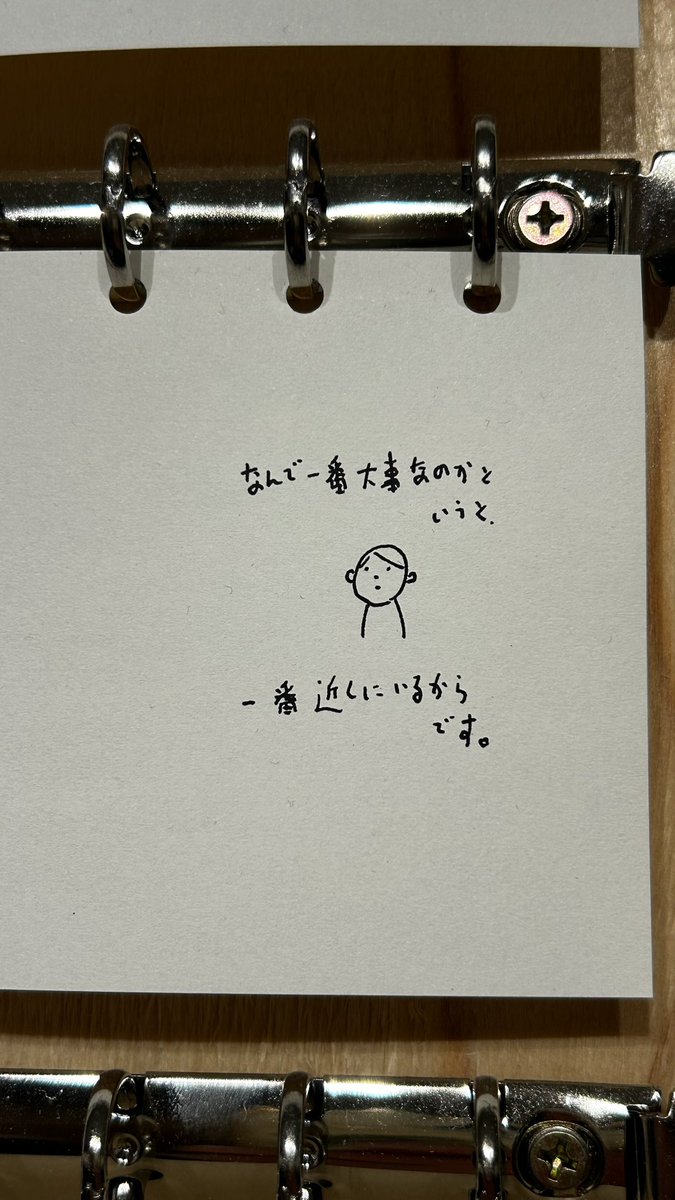 なんで一番大事なのかと
いうと、
一番近くにいるから
です。